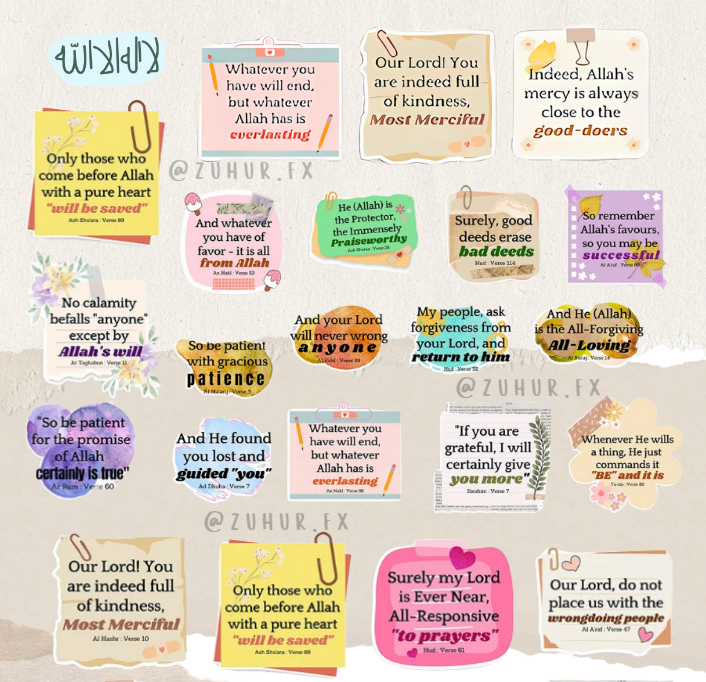 لا اله الا الله
Whatever you
have will end,
but whatever
Allah has is
everlasting
Our Lord! You
are indeed full
of kindness,
Most Merciful
Indeed, Allah's
mercy is always
close to the
good-doers
Only those who
come before Allah
with a pure heart
"will be saved"
Ash Shulara : Verse 89
@ZUHUR.FX
And whatever
you have of
favor - it is all
from Allah
An Nahl : Verse 53
He (Allah) is
the Protector,
the Immensely
Praiseworthy
Ash Shulra : Verse 28
Surely, good
deeds erase
bad deeds
Hud : Verse 114
So remember
Allah's favours,
so you may be
successful
Al A'raf : Verse 69
No calamity
befalls "anyone"
except by
Allah's will
At Taghabun : Verse 11
So be patient
with gracious
patience
Al Ma'arij : Verse 5
And your Lord
will never wrong
anyone
Al Kahf : Verse 49
My people, ask
forgiveness from
your Lord, and
return to him
Hud : Verse 52
And He (Allah)
is the All-Forgiving
All-Loving
Al Buruj : Verse 14
@ZUHUR.FX
"So be patient
for the promise
of Allah
certainly is true"
Ar Rum : Verse 60
And He found
you lost and
guided "you"
Ad Dhuha : Verse 7
Whatever you
have will end,
but whatever
Allah has is
everlasting
An Nahl : Verse 96
"If you are
grateful, I will
certainly give
you more"
Ibrahim : Verse 7
Whenever He wills
a thing, He just
commands it
"BE" and it is
Ya-sin : Verse 82
@ZUHUR.FX
Our Lord! You
are indeed full
of kindness,
Most Merciful
Al Hashr : Verse 10
Only those who
come before Allah
with a pure heart
"will be saved"
Ash Shulara : Verse 89
Surely my Lord
is Ever Near,
All-Responsive
"to prayers"
Hud : Verse 61
Our Lord, do not
place us with the
wrongdoing people
Al A'raf : Verse 47